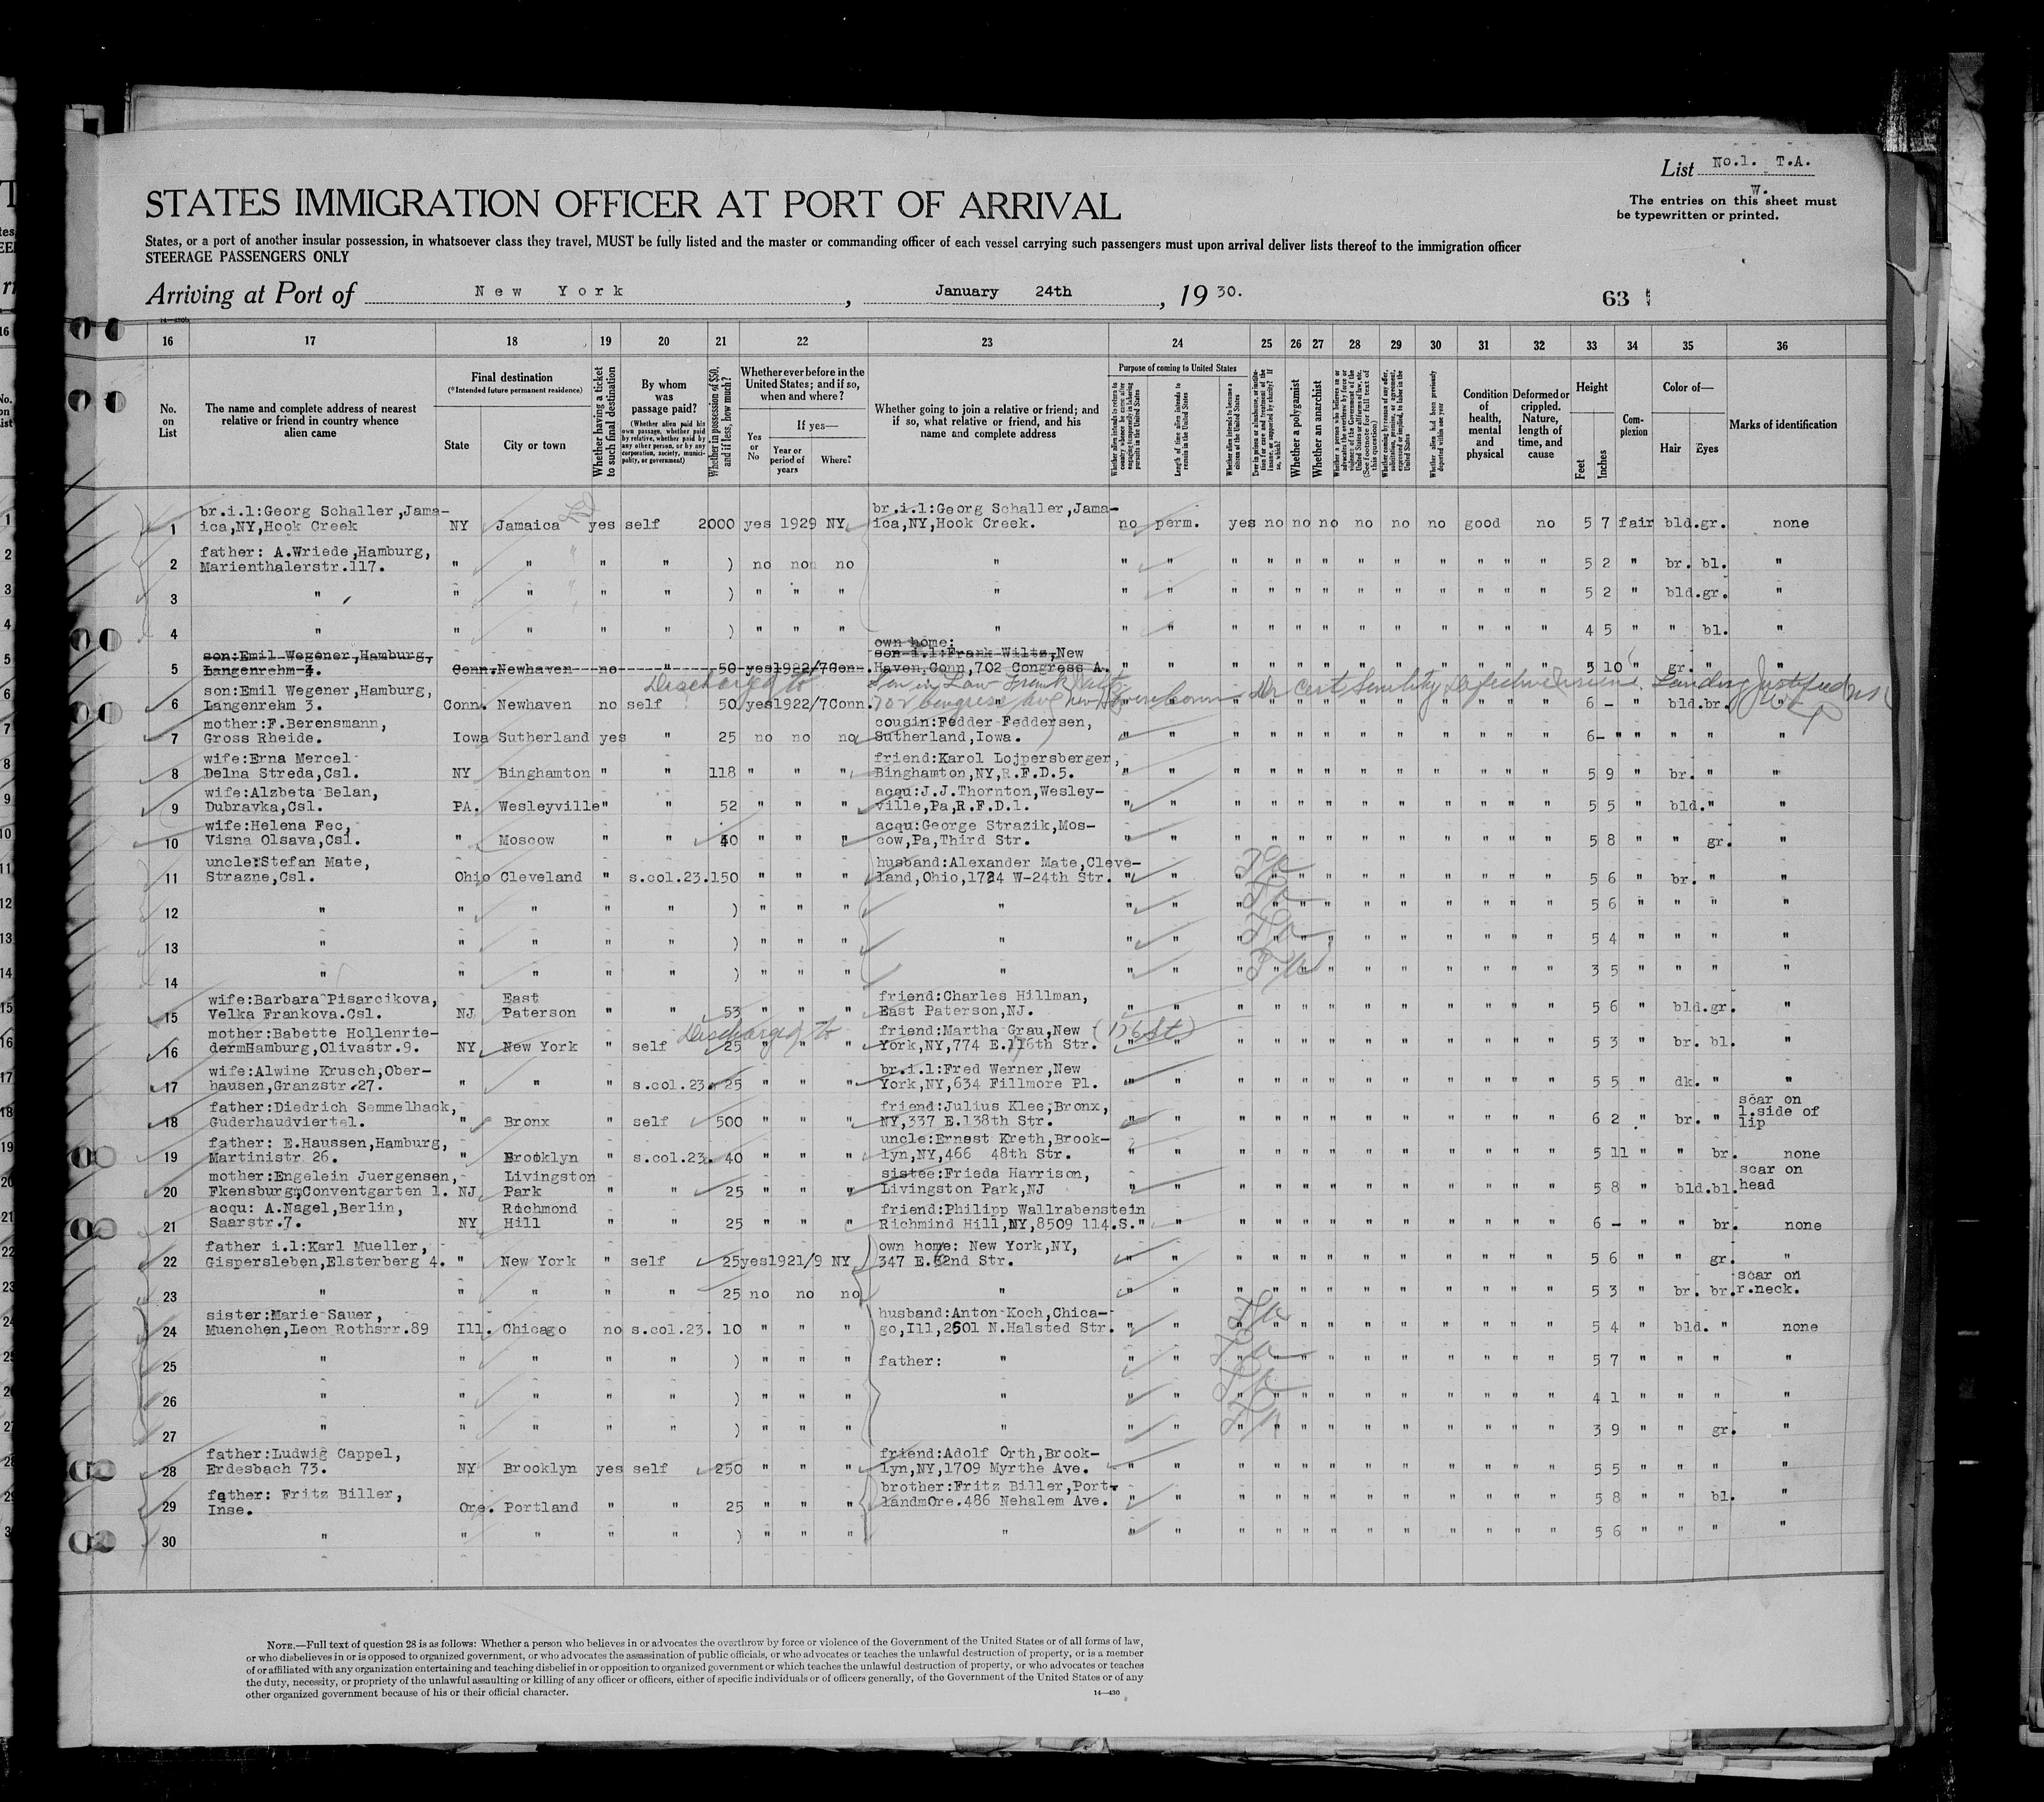 List No.1. T.A.
W.
The entries on this sheet must
be typewritten or printed.
STATES IMMIGRATION OFFICER AT PORT OF ARRIVAL
States, or a port of another insular possession, in whatsoever class they travel, MUST be fully listed and the master or commanding officer of each vessel carrying such passengers must upon arrival deliver lists thereof to the immigration officer
STEERAGE PASSENGERS ONLY
Arriving at Port of New York, January 24th, 1930.
63
16 17 18 19 20 21 22 23 24 25 26 27 28 29 30 31 32 33 34 35 36
No. on List
The name and complete address of nearest relative or friend in country whence alien came
Final destination
(*Intended future permanent residence)
State
City or town
Whether having a ticket to such final destination
By whom was passage paid?
(Whether alien paid his own passage, whether paid by relative, whether paid by any other person, or by any corporation, society, municipality, or government)
Whether in possession of $50, and if less, how much?
Whether ever before in the United States; and if so, when and where?
Yes or No
If yes—
Year or period of years
Where?
Whether going to join a relative or friend; and if so, what relative or friend, and his name and complete address
Purpose of coming to United States
Whether alien intends to return to country whence he came after engaging temporarily in laboring pursuits in the United States
Length of time alien intends to remain in the United States
Whether alien intends to become a citizen of the United States
Whether a polygamist
Whether an anarchist
Condition of health, mental and physical
Deformed or crippled. Nature, length of time, and cause
Height
Feet
Inches
Complexion
Color of—
Hair
Eyes
Marks of identification
1 br.i.l:Georg Schaller,Jama-
ica,NY,Hook Creek NY Jamaica yes self 2000 yes 1929 NY br.i.l:Georg Schaller,Jama-
ica,NY,Hook Creek. no perm. yes no no no no no no good no 5 7 fair bld.gr. none
2 father: A.Wriede,Hamburg,
Marienthalerstr.117. " " " " ) no non no " " " " " " " " " " " " 5 2 " br. bl. "
3 " " " " " ) " " " " " " " " " " " " " " " 5 2 " bld.gr. "
4 " " " " " ) " " " " " " " " " " " " " " 4 5 " " bl. "
5 son:Emil Wegener,Hamburg,
Langenrehm 4. Conn.Newhaven no " 50 yes1922/7Conn. own home:
son-i.l:Frank Wiltz,New
Haven,Conn,702 Congress A. " " " " " " " " " " " 5 10 " gr. " "
Discharged to Son in Law Frank
6 son:Emil Wegener,Hamburg,
Langenrehm 3. Conn. Newhaven no self 50 yes1922/7Conn. 702 Congress Ave New Haven Conn Dr Certs Senility Defective Vision Landing Justified 6 - " bld.br.
7 mother:F.Berensmann,
Gross Rheide. Iowa Sutherland yes " 25 no no no cousin:Fedder Feddersen,
Sutherland,Iowa. " " " " " " " " " " " 6- " " " " "
8 wife:Erna Mercel
Delna Streda,Csl. NY Binghamton " " 118 " " " friend:Karol Lojpersberger,
Binghamton,NY,R.F.D.5. " " " " " " " " " " " 5 9 " br. " "
9 wife:Alzbeta Belan,
Dubravka,Csl. PA. Wesleyville" " 52 " " " acqu:J.J.Thornton,Wesley-
ville,Pa,R.F.D.1. " " " " " " " " " " " 5 5 " bld." "
10 wife:Helena Fec,
Visna Olsava,Csl. " Moscow " " 40 " " " acqu:George Strazik,Mos-
cow,Pa,Third Str. " " " " " " " " " " " 5 8 " " gr. "
11 uncle:Stefan Mate,
Strazne,Csl. Ohio Cleveland " s.col.23.150 " " " husband:Alexander Mate,Cleve-
land,Ohio,1724 W-24th Str. " " " " " " " " " " " 5 6 " br. " "
12 " " " " " ) " " " " " " " " " " " " " " 5 6 " " " "
13 " " " " " ) " " " " " " " " " " " " " " 5 4 " " " "
14 " " " " " ) " " " " " " " " " " " " " " 3 5 " " " "
15 wife:Barbara Pisarcikova,
Velka Frankova.Csl. NJ East
Paterson " " 53 " " " friend:Charles Hillman,
East Paterson,NJ. " " " " " " " " " " " 5 6 bld.gr. "
Discharged to
16 mother:Babette Hollenrie-
dermHamburg,Olivastr.9. NY. New York " self 25 " " " friend:Martha Grau,New (176 St)
York,NY,774 E.116th Str. " " " " " " " " " " " 5 3 " br. bl. "
17 wife:Alwine Krusch,Ober-
hausen,Granzstr.27. " " " s.col.23. 25 " " " br.i.l:Fred Werner,New
York,NY,634 Fillmore Pl. " " " " " " " " " " " 5 5 " dk. " "
18 father:Diedrich Semmelhack,
Guderhaudviertel. " Bronx " self 500 " " " friend:Julius Klee,Bronx,
NY,337 E.138th Str. " " " " " " " " " " " 6 2 " br. " scar on
l.side of
lip
19 father: E.Haussen,Hamburg,
Martinistr 26. " Brooklyn " s.col.23. 40 " " " uncle:Ernest Kreth,Brook-
lyn,NY,466 48th Str. " " " " " " " " " " " 5 11 " " br. none
20 mother:Engelein Juergensen,
Fkensburg,Conventgarten 1. NJ Livingston
Park " " 25 " " " sistee:Frieda Harrison,
Livingston Park,NJ " " " " " " " " " " " 5 8 " bld.bl. scar on
head
21 acqu: A.Nagel,Berlin,
Saarstr.7. NY Richmond
Hill " " 25 " " " friend:Philipp Wallrabenstein
Richmind Hill,NY,8509 114.S." " " " " " " " " " " 6 - " " br. none
22 father i.l:Karl Mueller,
Gispersleben,Elsterberg 4. " New York " self 25yes1921/9 NY own home: New York,NY,
347 E.82nd Str. " " " " " " " " " " " 5 6 " " gr. "
23 " " " " " 25 no no no " " " " " " " " " " " " 5 3 " br. br. scar on
r.neck.
24 sister:Marie Sauer,
Muenchen,Leon Rothsrr.89 Ill. Chicago no s.col.23. 10 " " " husband:Anton Koch,Chica-
go,Ill,2501 N.Halsted Str. " " " " " " " " " " " 5 4 " bld. " none
25 " " " " " ) " " " father: " " " " " " " " " " " " 5 7 " " " "
26 " " " " " ) " " " " " " " " " " " " " " 4 1 " " " "
27 " " " " " ) " " " " " " " " " " " " " " 3 9 " " gr. "
28 father:Ludwig Cappel,
Erdesbach 73. NY Brooklyn yes self 250 " " " friend:Adolf Orth,Brook-
lyn,NY,1709 Myrthe Ave. " " " " " " " " " " " 5 5 " " " "
29 father: Fritz Biller,
Inse. Ore. Portland " " 25 " " " brother:Fritz Biller,Port-
landmOre.486 Nehalem Ave. " " " " " " " " " " " 5 8 " " bl. "
30 " " " " " ) " " " " " " " " " " " " " " 5 6 " " " "
NOTE.—Full text of question 28 is as follows: Whether a person who believes in or advocates the overthrow by force or violence of the Government of the United States or of all forms of law,
or who disbelieves in or is opposed to organized government, or who advocates the assassination of public officials, or who advocates or teaches the unlawful destruction of property, or is a member
of or affiliated with any organization entertaining and teaching disbelief in or opposition to organized government or which teaches the unlawful destruction of property, or who advocates or teaches
the duty, necessity, or propriety of the unlawful assaulting or killing of any officer or officers, either of specific individuals or of officers generally, of the Government of the United States or of any
other organized government because of his or their official character.
14—430